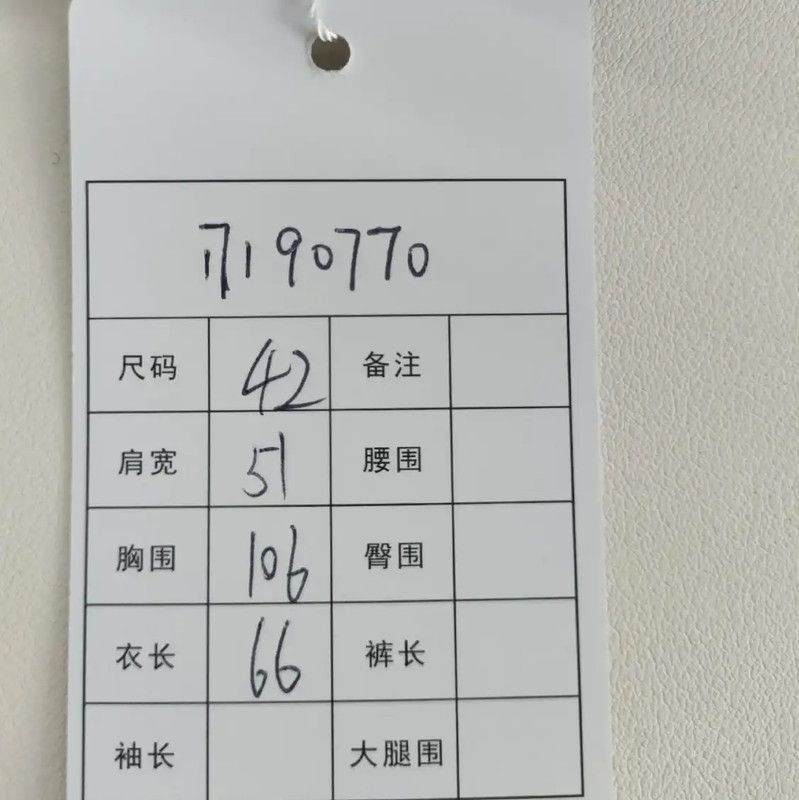 17190770
尺码 42 备注
肩宽 51 腰围
胸围 106 臀围
衣长 66 裤长
袖长 大腿围